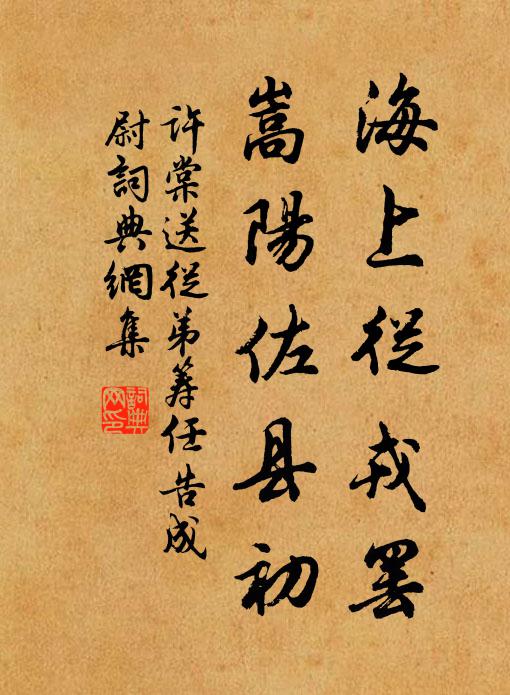 海上從戎罢
嵩陽佐县初
許棠送從弟筹任告成
尉詞典網集
詞典网印